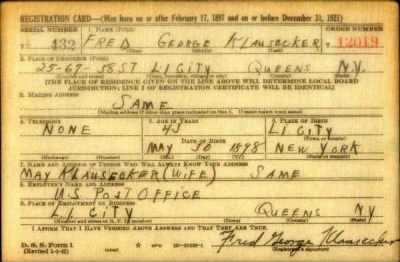 REGISTRATION CARD—(Men born on or after February 17, 1897 and on or before December 31, 1921)
SERIAL NUMBER 1. NAME (Print) ORDER NUMBER
432 FRED GEORGE KLAUSECKER 12019
(First) (Middle) (Last)
2. PLACE OF RESIDENCE (Print)
25-67-38 ST LI CITY QUEENS N.Y.
[THE PLACE OF RESIDENCE GIVEN ON THE LINE ABOVE WILL DETERMINE LOCAL BOARD
JURISDICTION; LINE 2 OF REGISTRATION CERTIFICATE WILL BE IDENTICAL]
3. MAILING ADDRESS
SAME
[Mailing address if other than place indicated on line 2. If same insert word same]
4. TELEPHONE 5. AGE IN YEARS 6. PLACE OF BIRTH
NONE 43 LI CITY
DATE OF BIRTH (Town or county)
MAY 30 1898 NEW YORK
(Exchange) (Number) (Mo.) (Day) (Yr.) (State or country)
7. NAME AND ADDRESS OF PERSON WHO WILL ALWAYS KNOW YOUR ADDRESS
MAY KLAUSECKER (WIFE) SAME
8. EMPLOYER'S NAME AND ADDRESS
U.S. POST OFFICE
9. PLACE OF EMPLOYMENT OR BUSINESS
L.I. CITY QUEENS NY
(Number and street or R. F. D. number) (Town) (County) (State)
I AFFIRM THAT I HAVE VERIFIED ABOVE ANSWERS AND THAT THEY ARE TRUE.
D. S. S. Form 1
(Revised 1-1-42) (over) Fred George Klausecker